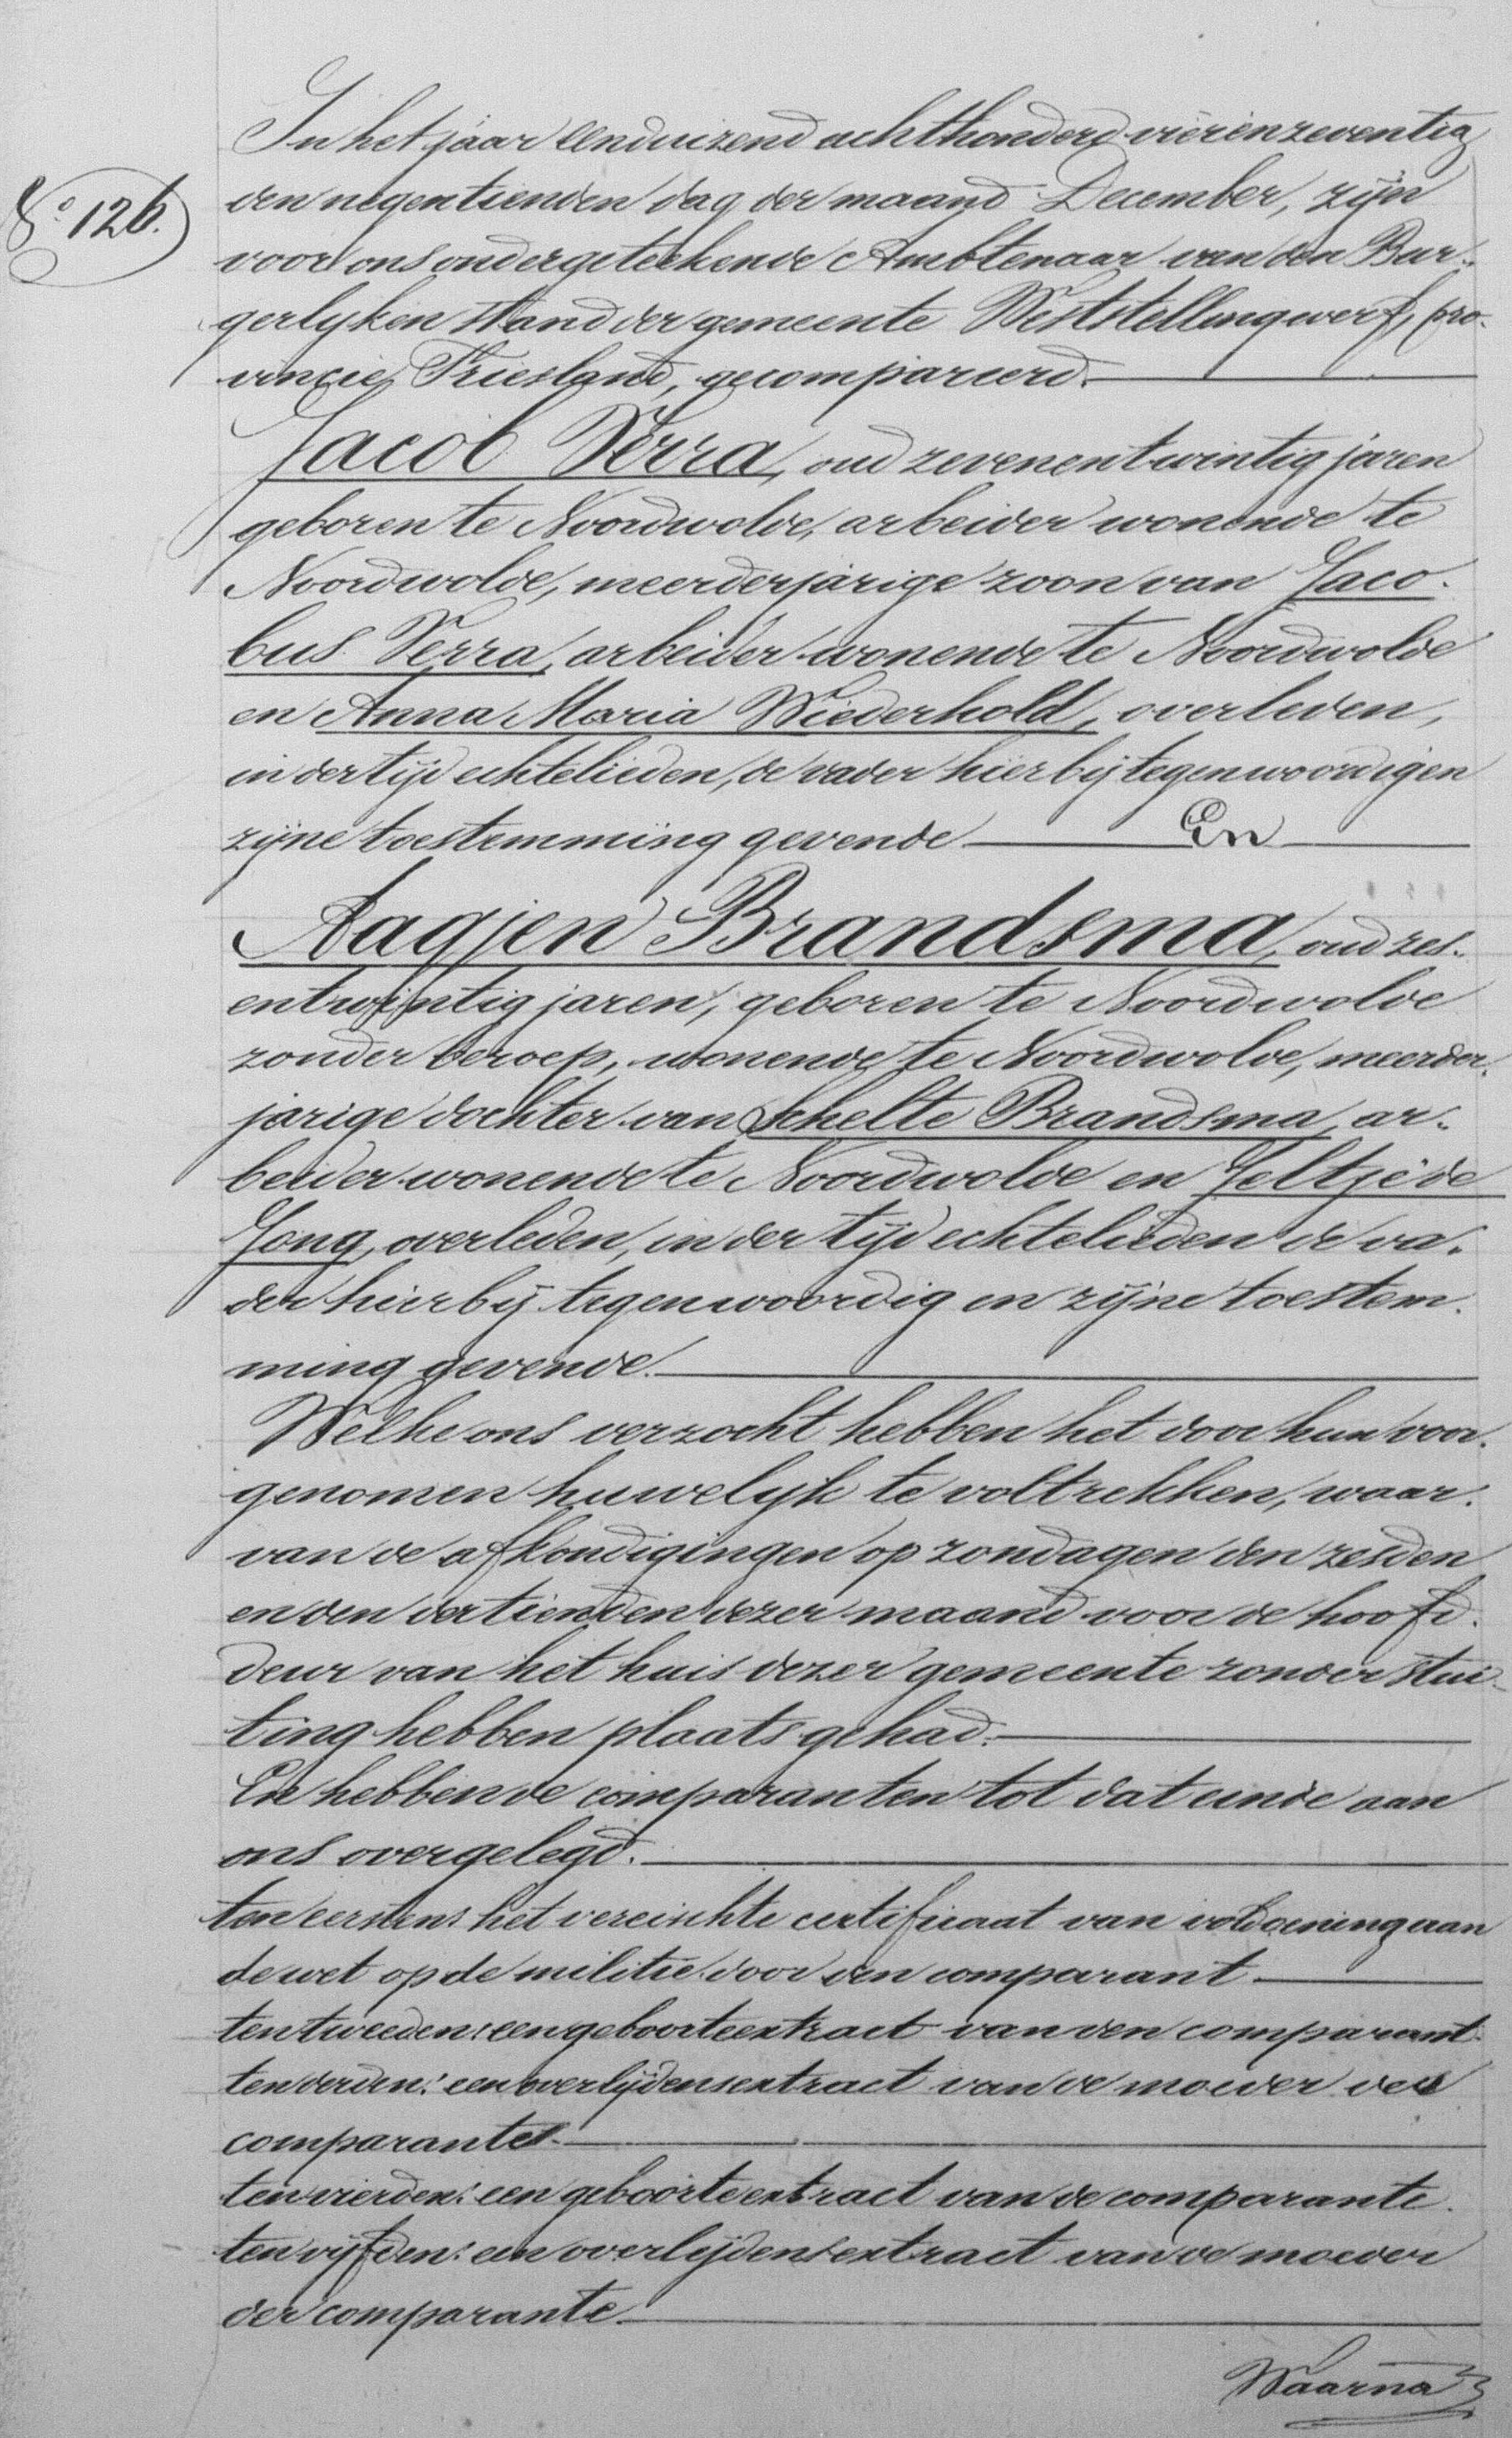 In het jaar eenduizend achthonderd vierenzeventig
den negentienden dag der maand December, zijn
No 126.
voor ons ondergeteekende Ambtenaar van den Bur-
gerlyken stand der gemeente Weststellingwerf, pro-
vincie Friesland, gecompareerd.
Jacob Verra, oud zevenentwintig jaren
geboren te Noordwolde, arbeider wonende te
Noordwolde, meerderjarige zoon van Jaco-
bus Verra, arbeider wonende te Noordwolde
en Anna Maria Wiederhold, overleden,
in der tijd echtelieden, de vader hierbij tegenwoordig en
zijne toestemming gevende En
Aagjen Brandsma, oud zes-
entwintig jaren, geboren te Noordwolde
zonder beroep, wonende te Noordwolde, meerder-
jarige dochter van Schelte Brandsma, ar-
beider wonende te Noordwolde en Jeltje de
Jong, overleden, in der tijd echtelieden de va-
der hierbij tegenwoordig en zijne toestem-
ming gevende.
Welke ons verzocht hebben het door hun voor-
genomen huwelyk te voltrekken, waar-
van de afkondigingen op zondagen den zesden
en den dertienden dezer maand voor de hoofd-
deur van het huis dezer gemeente zonder stui-
ting hebben plaats gehad.
En hebben de comparanten tot dat einde aan
ons overgelegd.
ten eersten: het vereischte certificaat van voldoening aan
de wet op de militie door den comparant
ten tweeden: een geboorteextract van den comparant
ten derden: een overlijdensextract van de moeder des
comparants
ten vierden: een geboorteextract van de comparante.
ten vijfden: een overlijdensextract van de moeder
der comparante.
Waarna